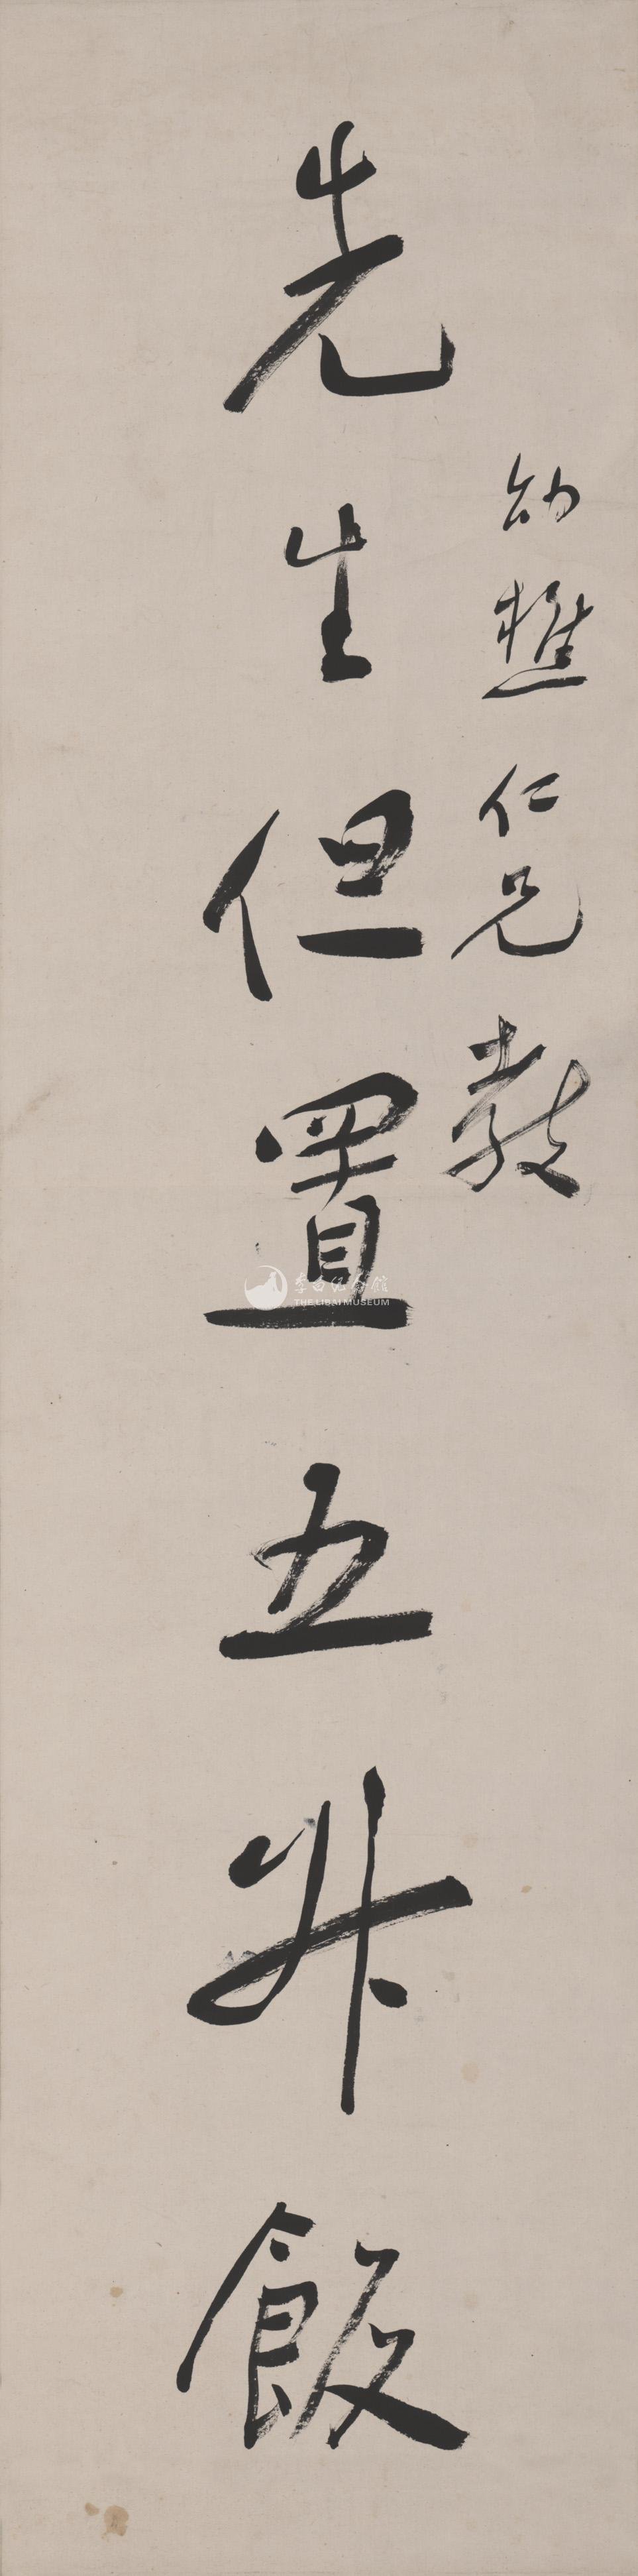 幼樵仁兄教
先生但置五升飯
李白纪念馆
THE LIBAI MUSEUM